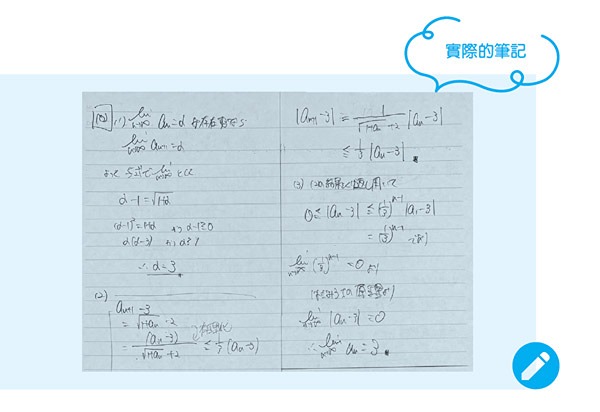 實際的筆記
102 (1) lim n→∞ an = α が存在するなら
lim n→∞ an+1 = α
よって 与式で lim n→∞ とくに
α-1 = √1+α
(α-1)² = 1+α かつ α-1≧0
α(α-3) かつ α≧1
∴ α = 3
(2)
an+1 - 3
= √1+an - 2
= (an-3) / √1+an + 2 ≦ 1/3 (an-3)
|an+1 - 3| = 1 / √1+an + 2 |an-3|
≦ 1/3 |an-3|
(3) (2)の結果をくり返し用いて
0 ≦ |an-3| ≦ (1/3)^n-1 |a1-3|
= (1/3)^n-1
lim n→∞ (1/3)^n-1 = 0 より
はさみうちの原理より
lim n→∞ |an-3| = 0
∴ lim n→∞ an = 3